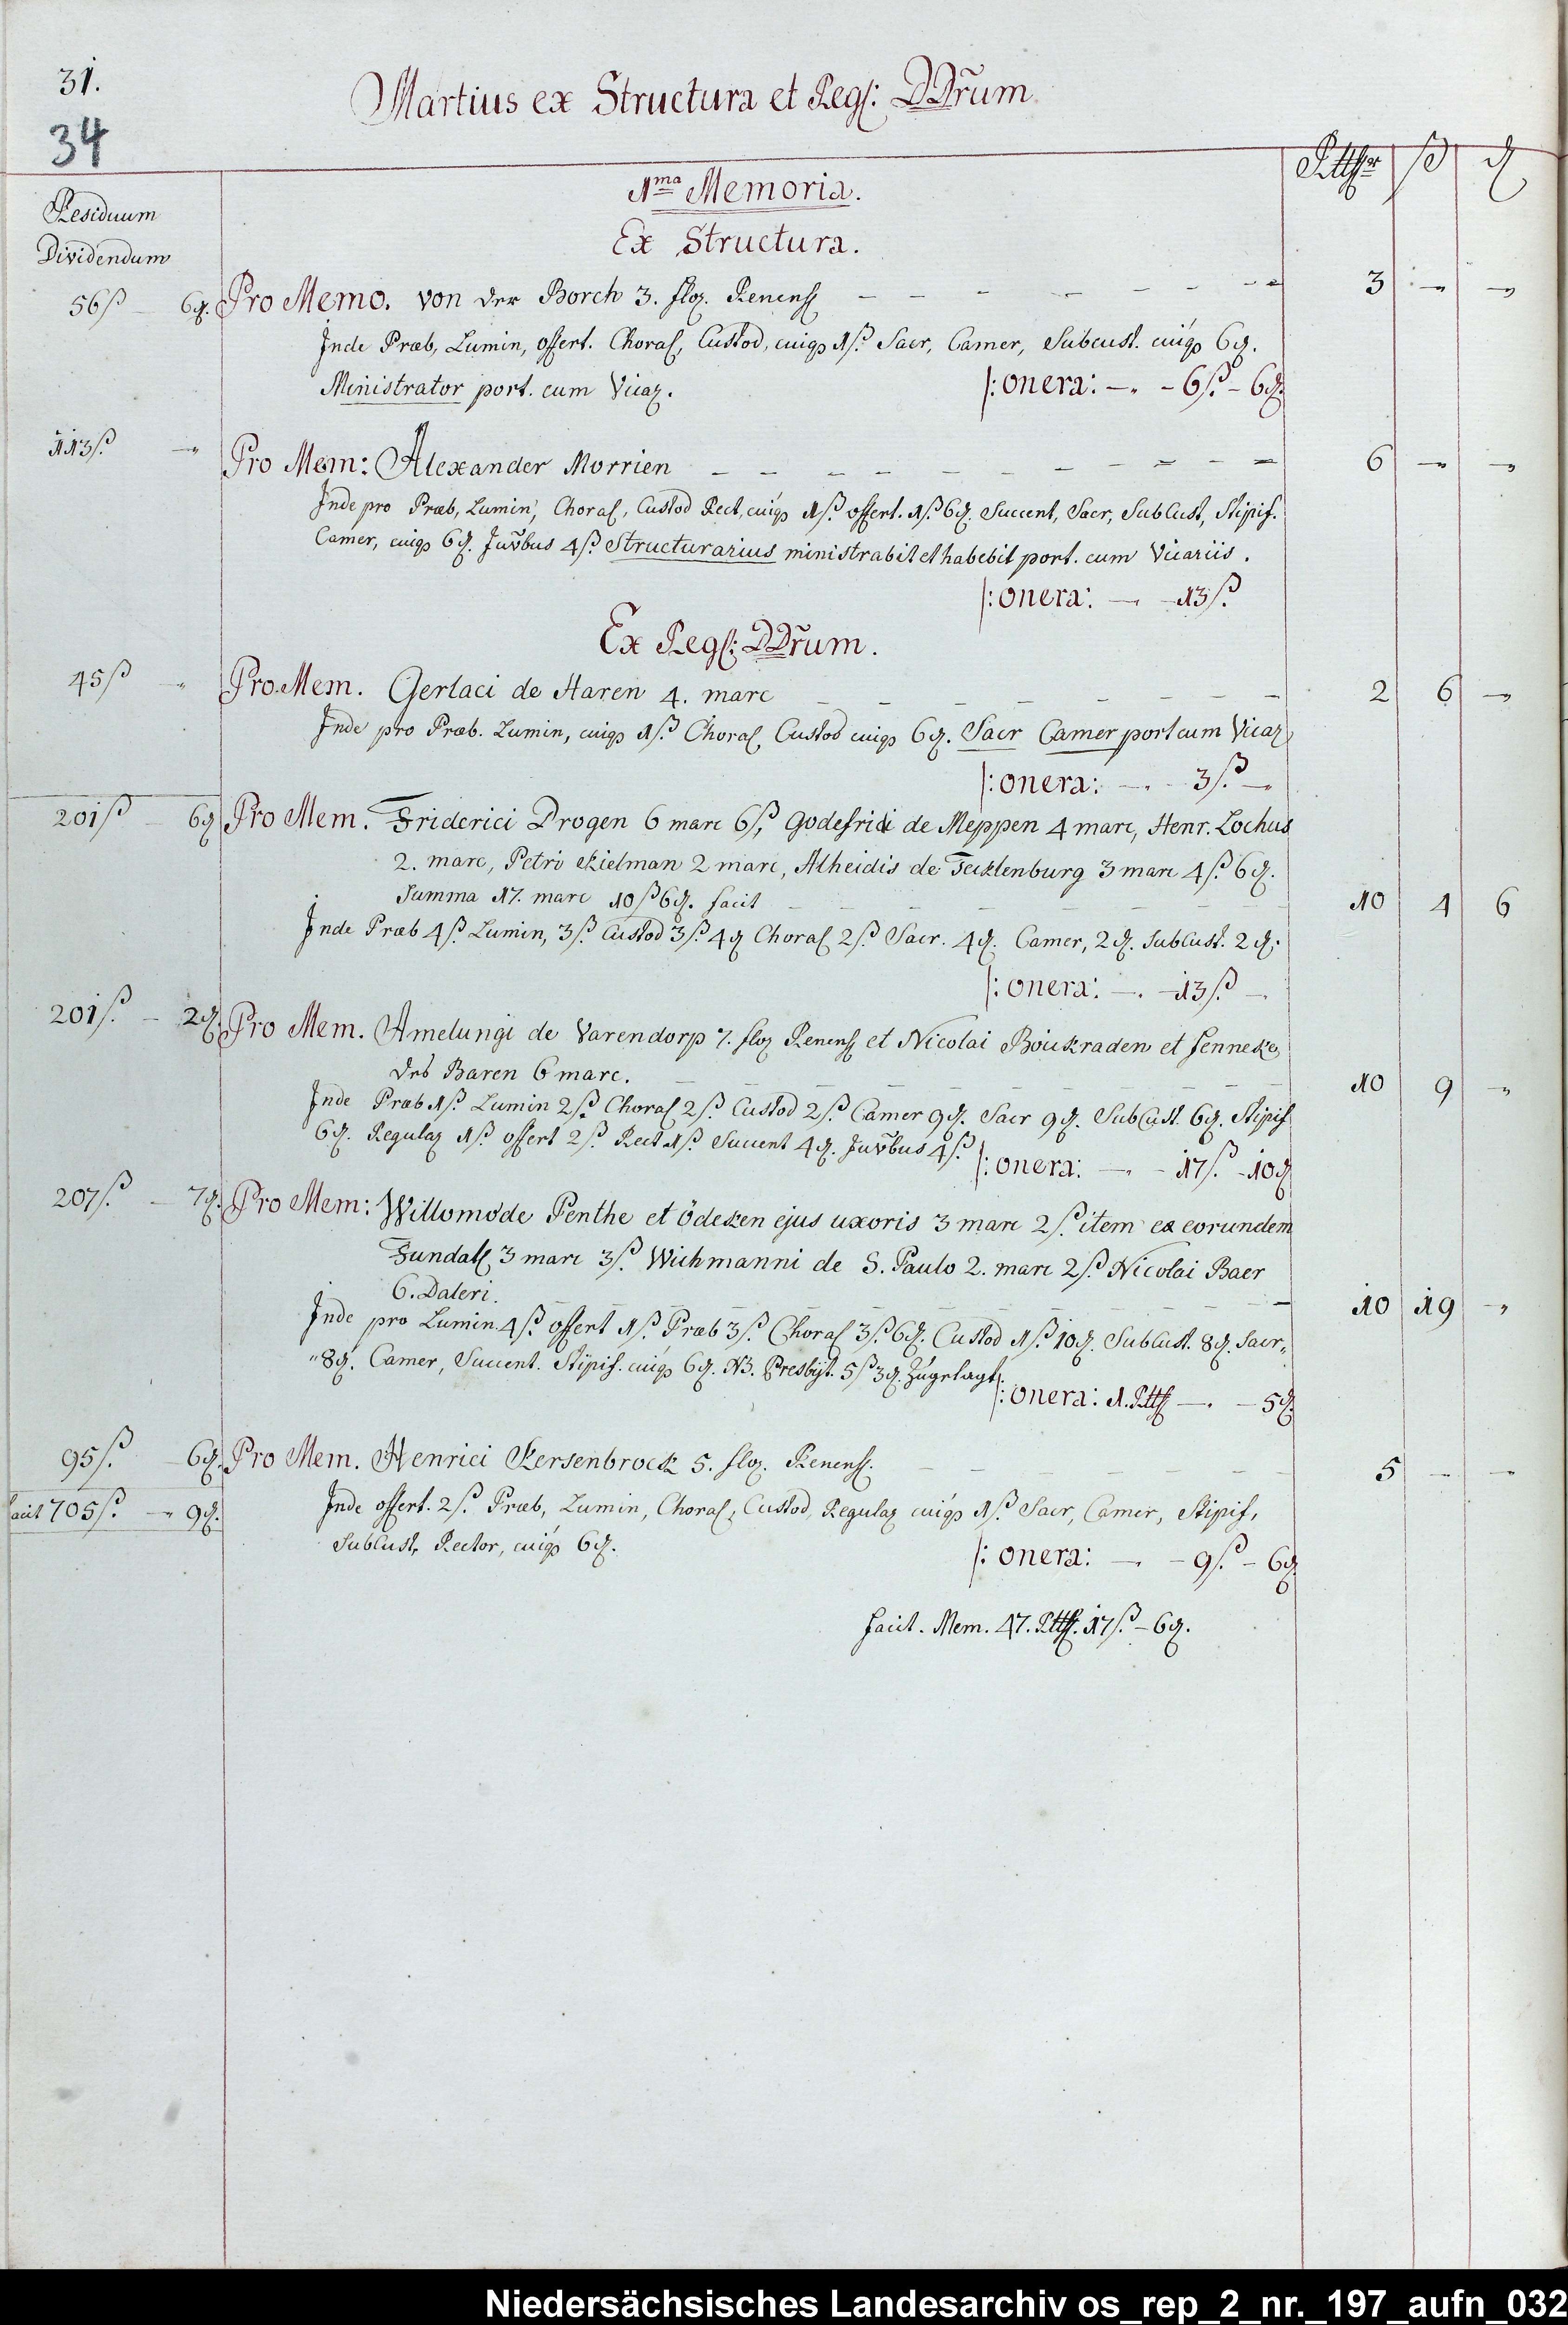 31.
34
Martius ex Structura et Regß: DDr̃um.
Rtthlr ß ₰
Residuum
Dividendum
1ma Memoria.
Ex Structura.
56ß – 6₰. Pro Memo. von der Borch 3. flor. Renenß – – – – – – – – 3 – –
Inde Præb, Lumin, offert. Choral, Custod, cuiq 1ß. Sacr, Camer, Subcust. cuiq 6₰.
Ministrator port. cum Vicar. |: onera: – – 6ß. – 6₰.
113ß. – Pro Mem: Alexander Morrien – – – – – – – – – – 6 – –
Inde pro Præb, Lumin, Choral, Custod Rect, cuiq 1ß. offert. 1ß. 6₰. Succent, Sacr, SubCust, Stipif.
Camer, cuiq 6₰. Juv̄bus 4ß. Structurarius ministrabit et habebit port. cum Vicariis.
|: onera: – – 13ß.
Ex Regß: DDr̃um.
45ß – Pro Mem. Gerlaci de Haren 4. marc – – – – – – – – 2 6 –
Inde pro Præb. Lumin, cuiq 1ß. Choral, Custod cuiq 6₰. Sacr Camer port cum Vicar
|: onera: – – 3ß. –
201ß – 6₰ Pro Mem. Friderici Drogen 6 marc 6ß, Godefridi de Meppen 4 marc, Henr. Lochus
2. marc, Petri Kielman 2 marc, Alheidis de Tecklenburg 3 marc 4ß. 6₰.
Summa 17. marc 10ß 6₰. facit – – – – – – – – 10 4 6
Inde Præb 4ß. Lumin, 3ß. Custod 3ß. 4₰ Choral 2ß. Sacr. 4₰. Camer, 2₰. SubCust. 2₰.
|: onera: – – 13ß. –
201ß. – 2₰. Pro Mem. Amelungi de Varendorp 7. flor Renenß et Nicolai Boickraden et Jenneke
des Baren 6 marc. – – – – – – – – – 10 9 –
Inde Præb 1ß. Lumin 2ß. Choral 2ß. Custod 2ß. Camer 9₰. Sacr 9₰. SubCust. 6₰. Stipif
6₰. Regular 1ß. offert 2ß. Rect 1ß. Succent 4₰. Juv̄bus 4ß. |: onera: – – 17ß. – 10₰
207ß. – 7₰. Pro Mem: Willomode Penthe et Ödeken ejus uxoris 3 marc 2ß. item ex eorundem
Fundatß 3 marc 3ß. Wichmanni de S. Paulo 2. marc 2ß. Nicolai Baer
6. Daleri. – – – – – – – – – – 10 19 –
Inde pro Lumin. 4ß. offert 1ß. Præb 3ß. Choral 3ß. 6₰. Custod 1ß. 10₰. SubCust. 8₰. Sacr„
„8₰. Camer, Succent. Stipif. cuiq 6₰. NB. Presbijt. 5ß 3₰. Zugelagt |: onera: 1. Rttß – – 5₰.
95ß. – 6₰. Pro Mem. Henrici Kersenbrock 5. flor. Renenß. – – – – – – 5 – –
facit 705ß. – 9₰. Inde offert. 2ß. Præb, Lumin, Choral, Custod, Regular cuiq 1ß. Sacr, Camer, Stipif,
SubCust, Rector, cuiq 6₰. |: onera: – – 9ß. – 6₰
facit. Mem. 47. Rttß. 17ß. – 6₰.
Niedersächsisches Landesarchiv os_rep_2_nr._197_aufn_032